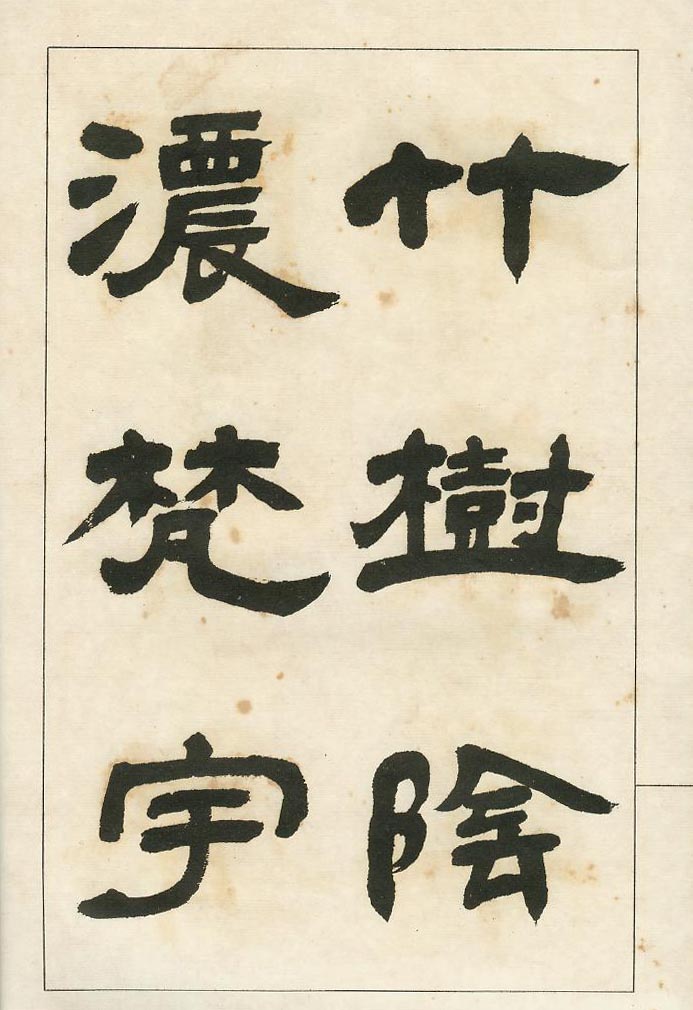 竹樹陰
濃梵宇